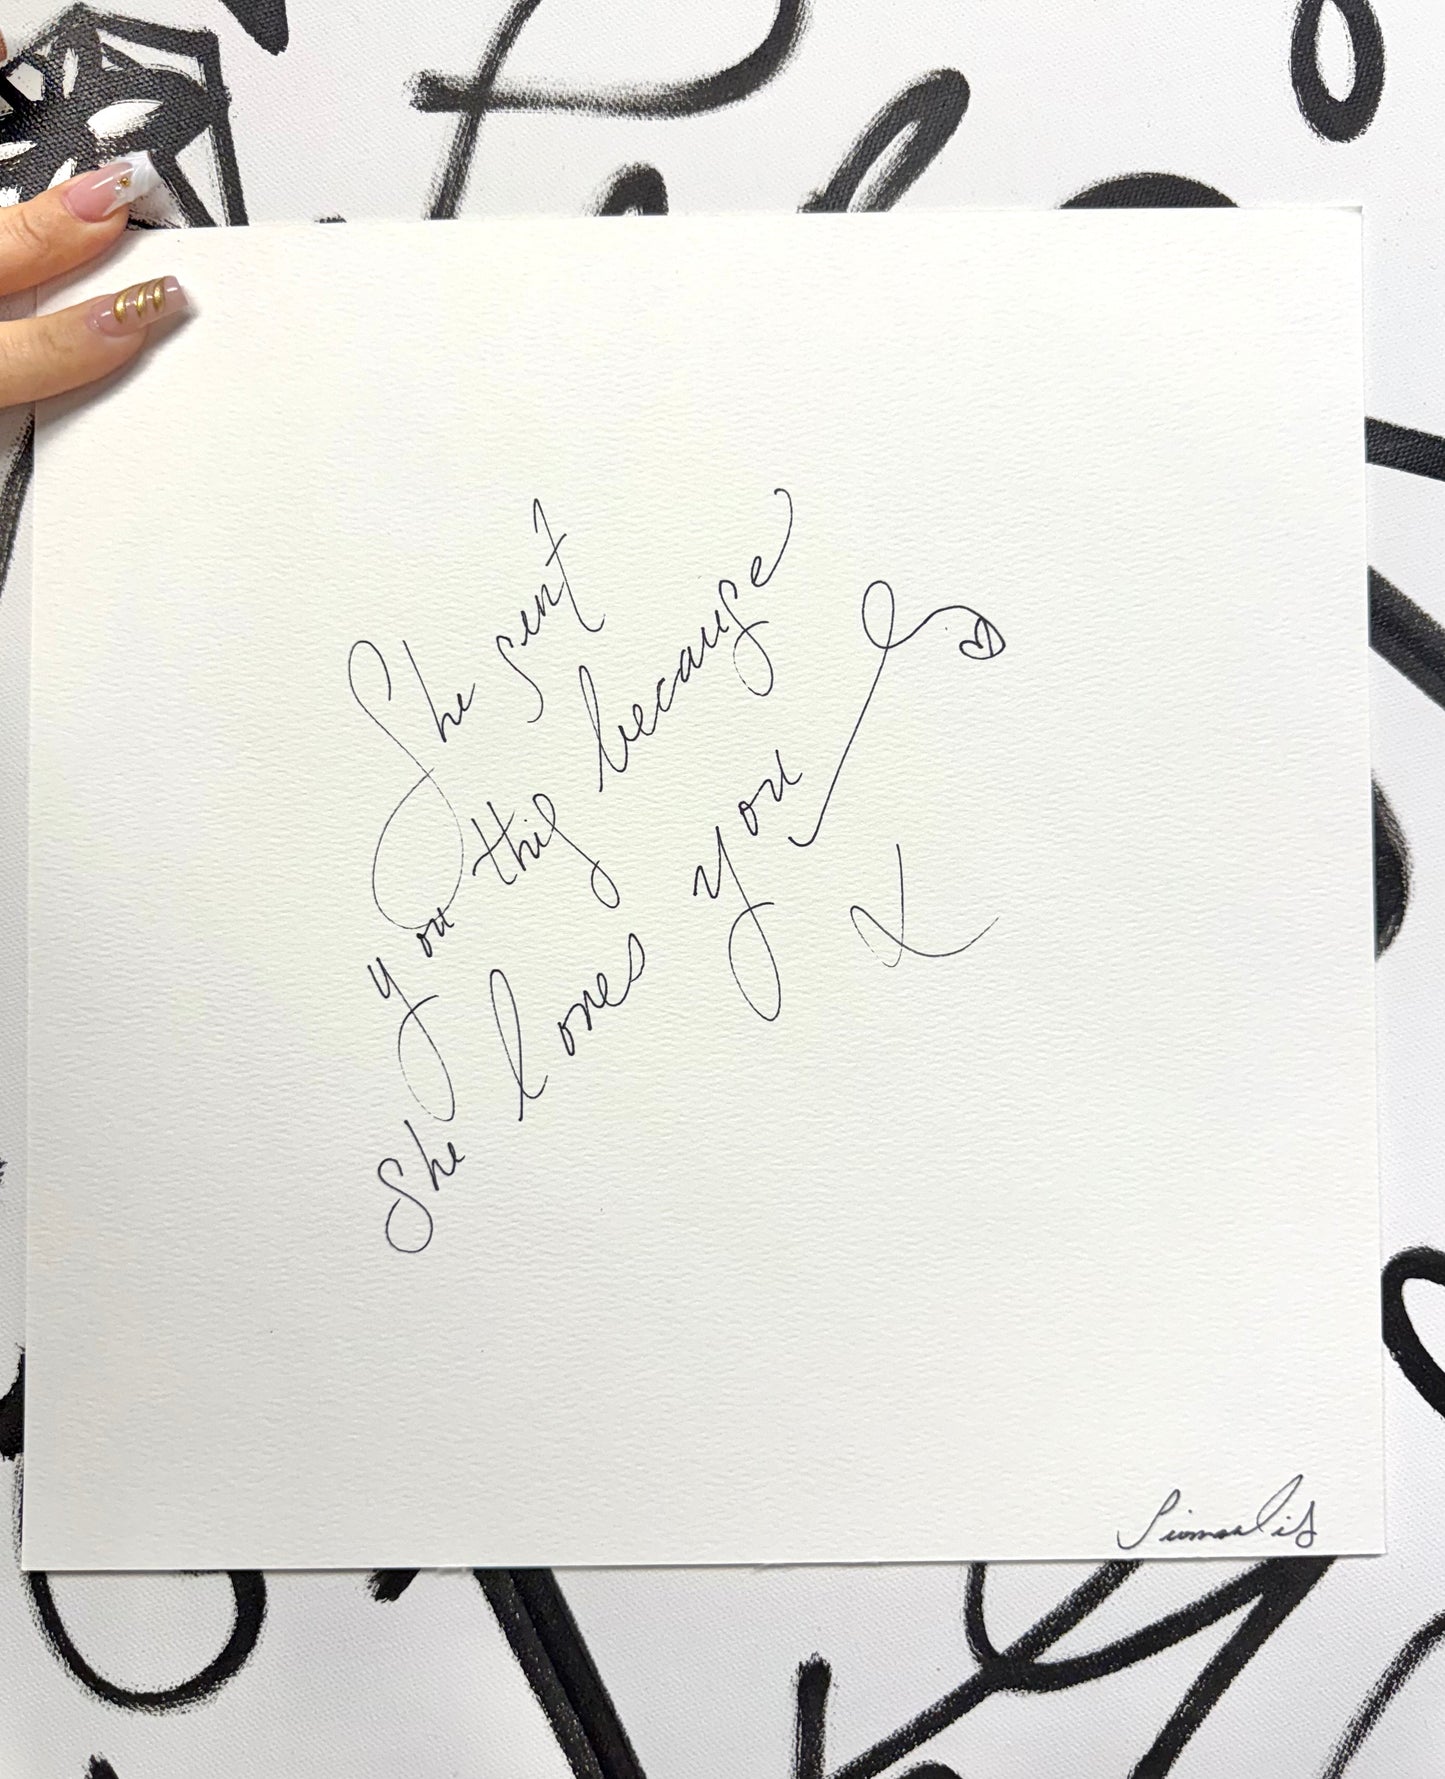 She sent
you this because
She loves you
x